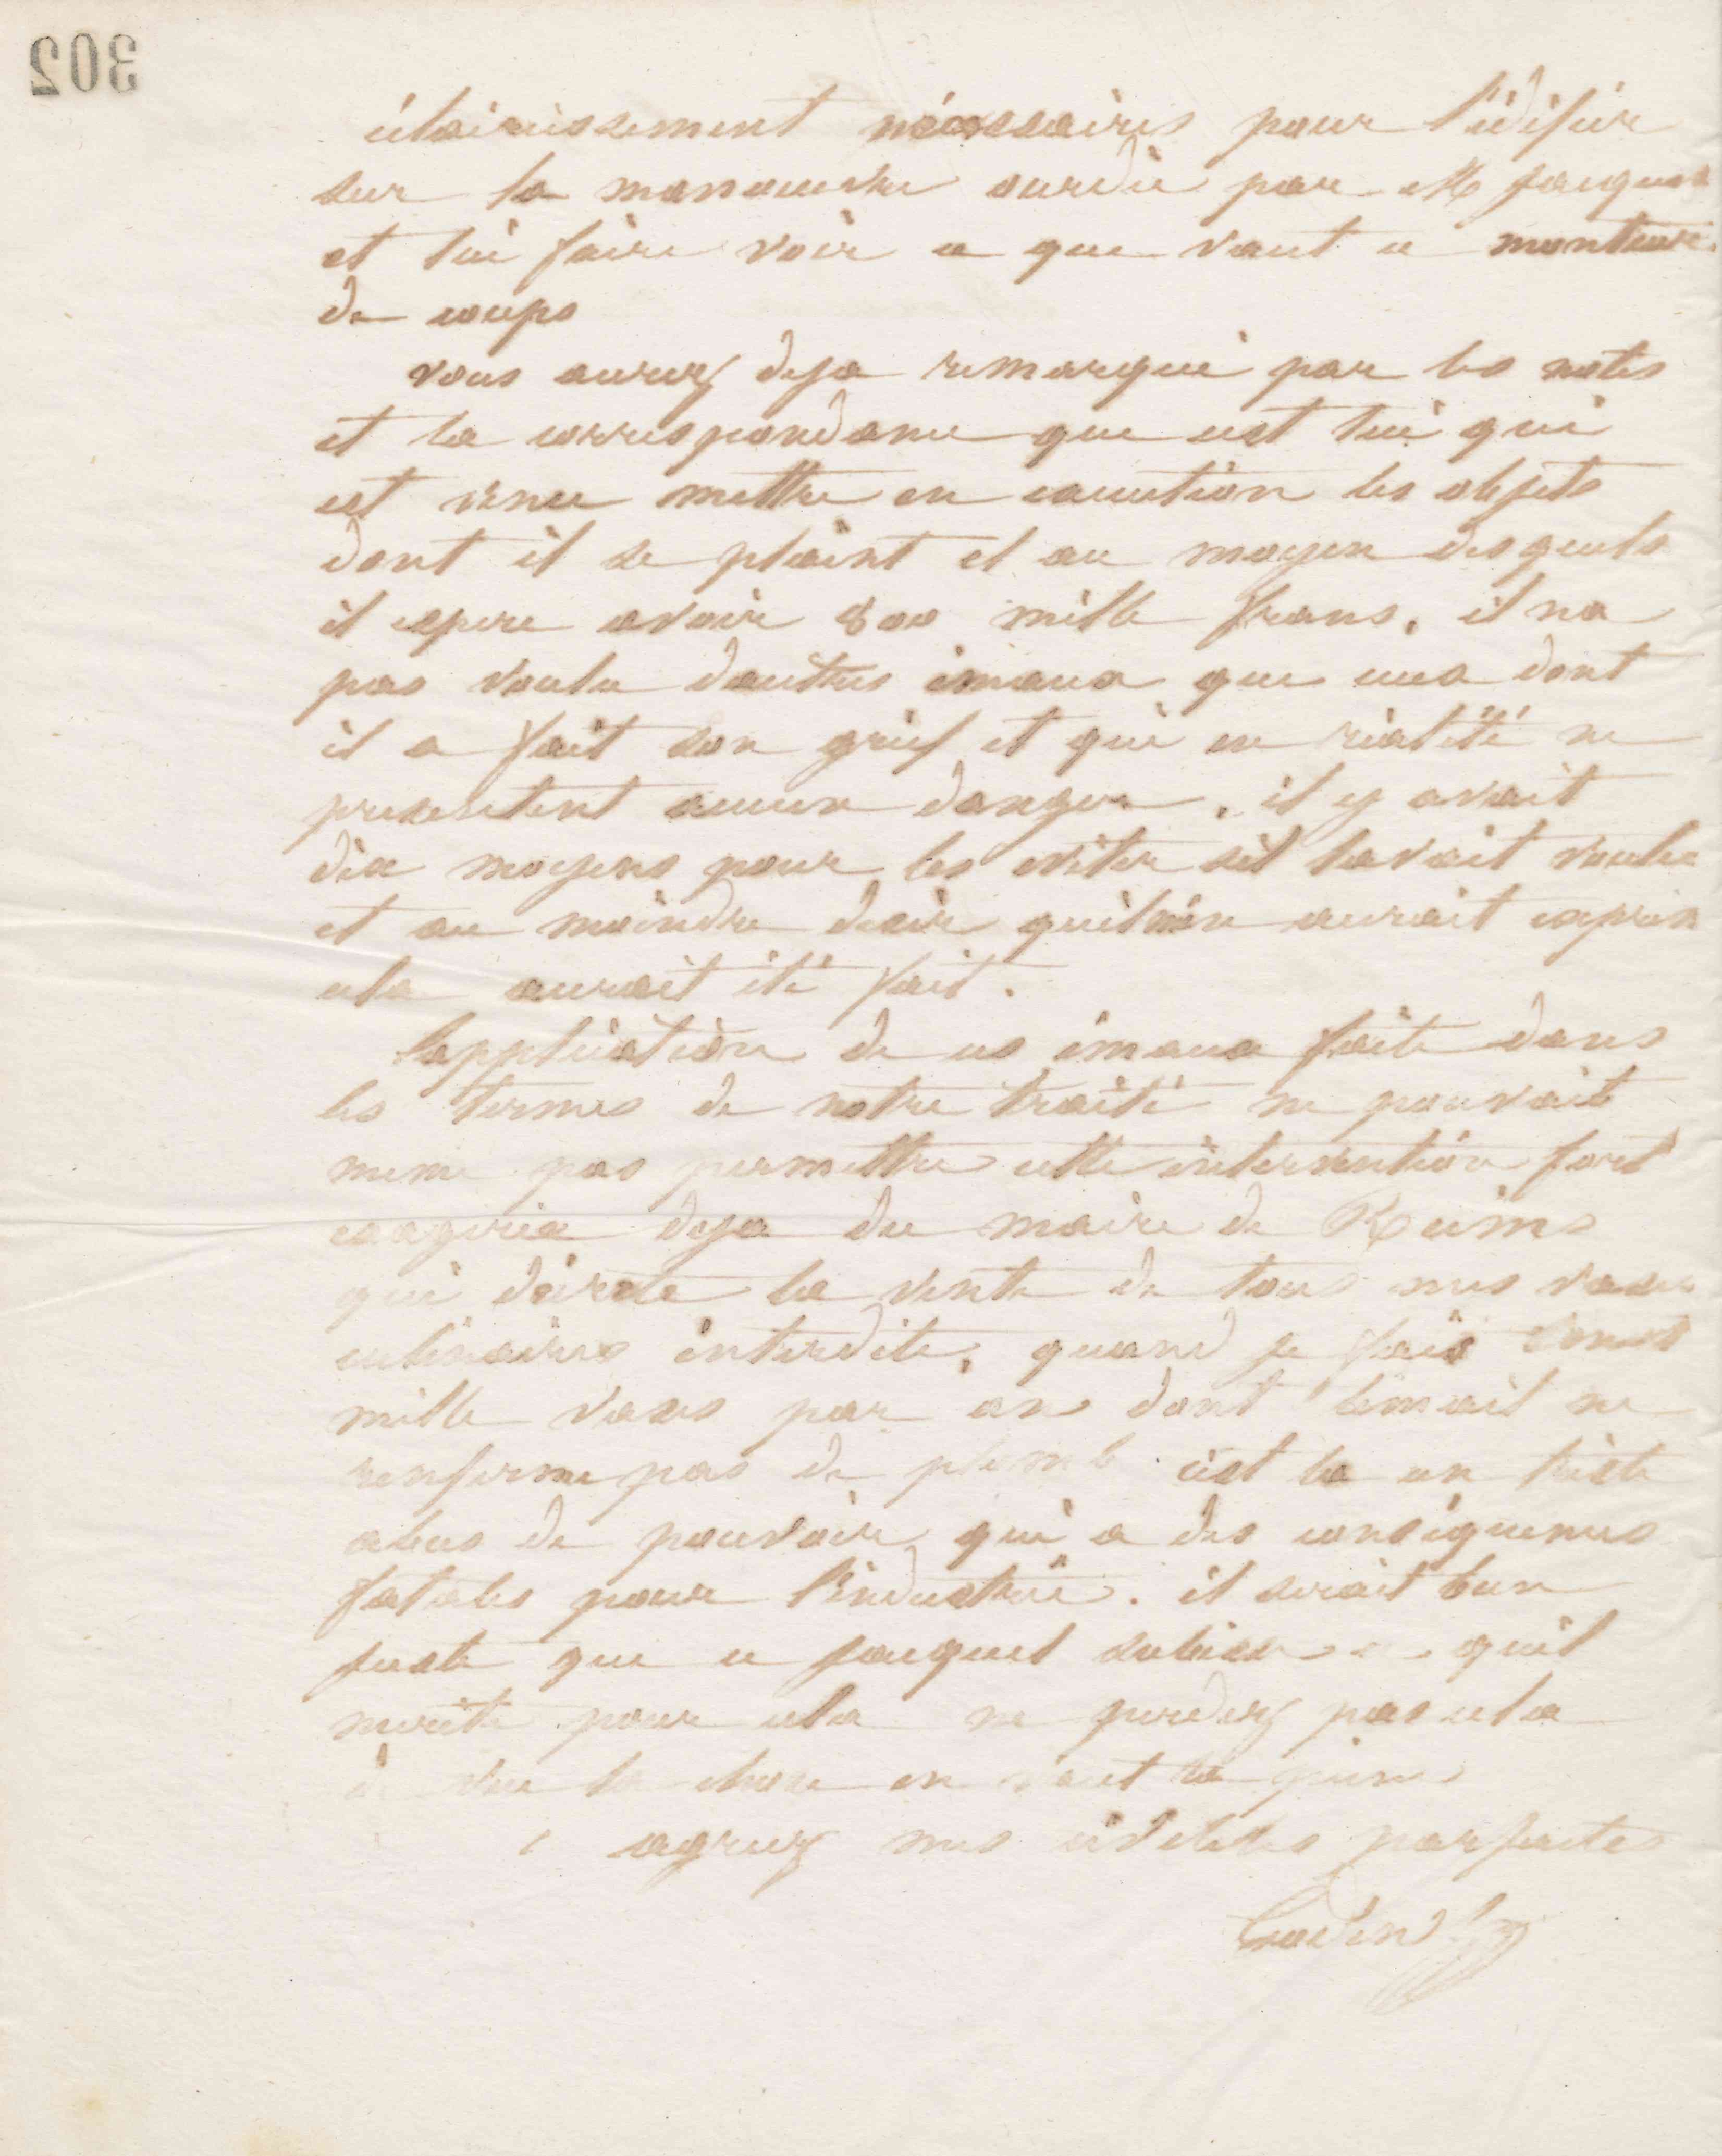 302
éclaircissement nécessaires pour l'édifier
sur la manoeuvre ourdie par M Jacquet
et lui faire voir ce que vaut ce monteur
de coups
vous aurez deja remarqué par les notes
et la correspondance que cest lui qui
est venu mettre en execution les objets
dont il se plaint et au moyen desquels
il espere avoir 800 mille francs. il na
pas voulu dautres émaux que ceux dont
il a fait son grief et qui en réalité ne
presentent aucun danger. il y avait
dix moyens pour les eviter sil lavait voulu
et au moindre desir quil men aurait exprimé
cela aurait été fait.
Lapplication de ces émaux faite dans
les termes de notre traité ne pouvait
meme pas permettre cette intervention fort
exagerée deja du maire de Reims
qui déclare la vente de tous mes vases
culinaires interdite, quand je fais
mille vases par an dont lémail ne
renferme pas de plomb. cest la un triste
abus de pouvoir qui a des consequences
fatales pour l'industrie. il serait bien
juste que ce Jacquet subisse ce quil
merite pour cela ne perdez pas cela
de vue la chose en vaut la peine
agreez mes civilités parfaites
Godin